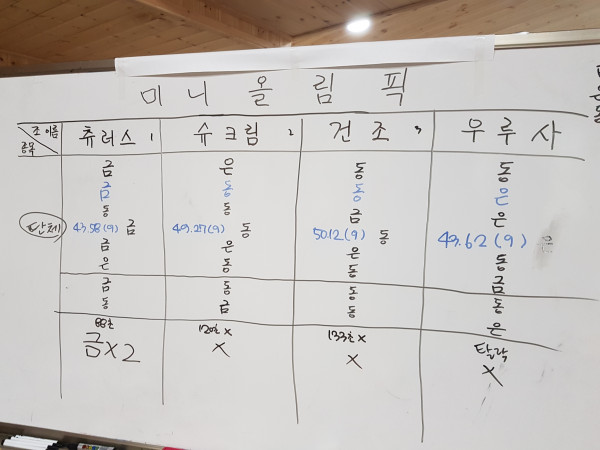 미니올림픽
조이름 츄러스 1 슈크림 2 건조 3 우루사
종목
금 은 동 동
금 동 동 은
동 동 금 은
단체 43.58(9) 금 49.27(9) 동 50.12(9) 동 49.62(9) 은
금 은 은 동
은 동 동 금
금 동 동 동
동 금 동 은
88초 120초 x 133초 x 탈락
금x2 x x x
금
은
동